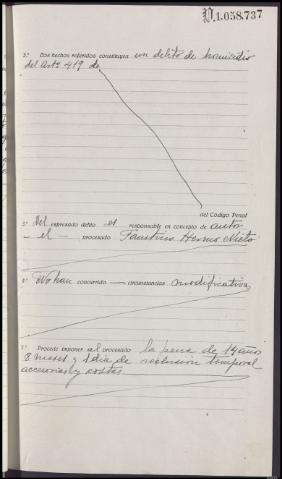 D.1.058.737
2º Los hechos referidos constituyen un delito de homicidio
del Artº 419 de
del Código Penal
3º Del expresado delito es responsable en concepto de autor
- el - procesado Faustino Hermo Nieto
4º No han concurrido circunstancias modificativas
5º Procede imponer al procesado la pena de 14 años
8 meses y 1 dia de reclusión temporal
accesorias y costas